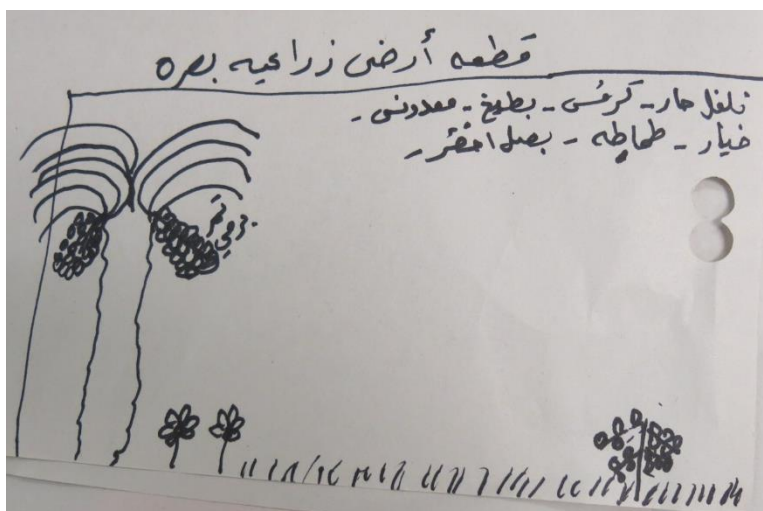 قطعه أرض زراعيه بصره
فلفل حار - كرفس - بطيخ - معدونس -
خيار - طماطه - بصل اخضر -
برحي تمر